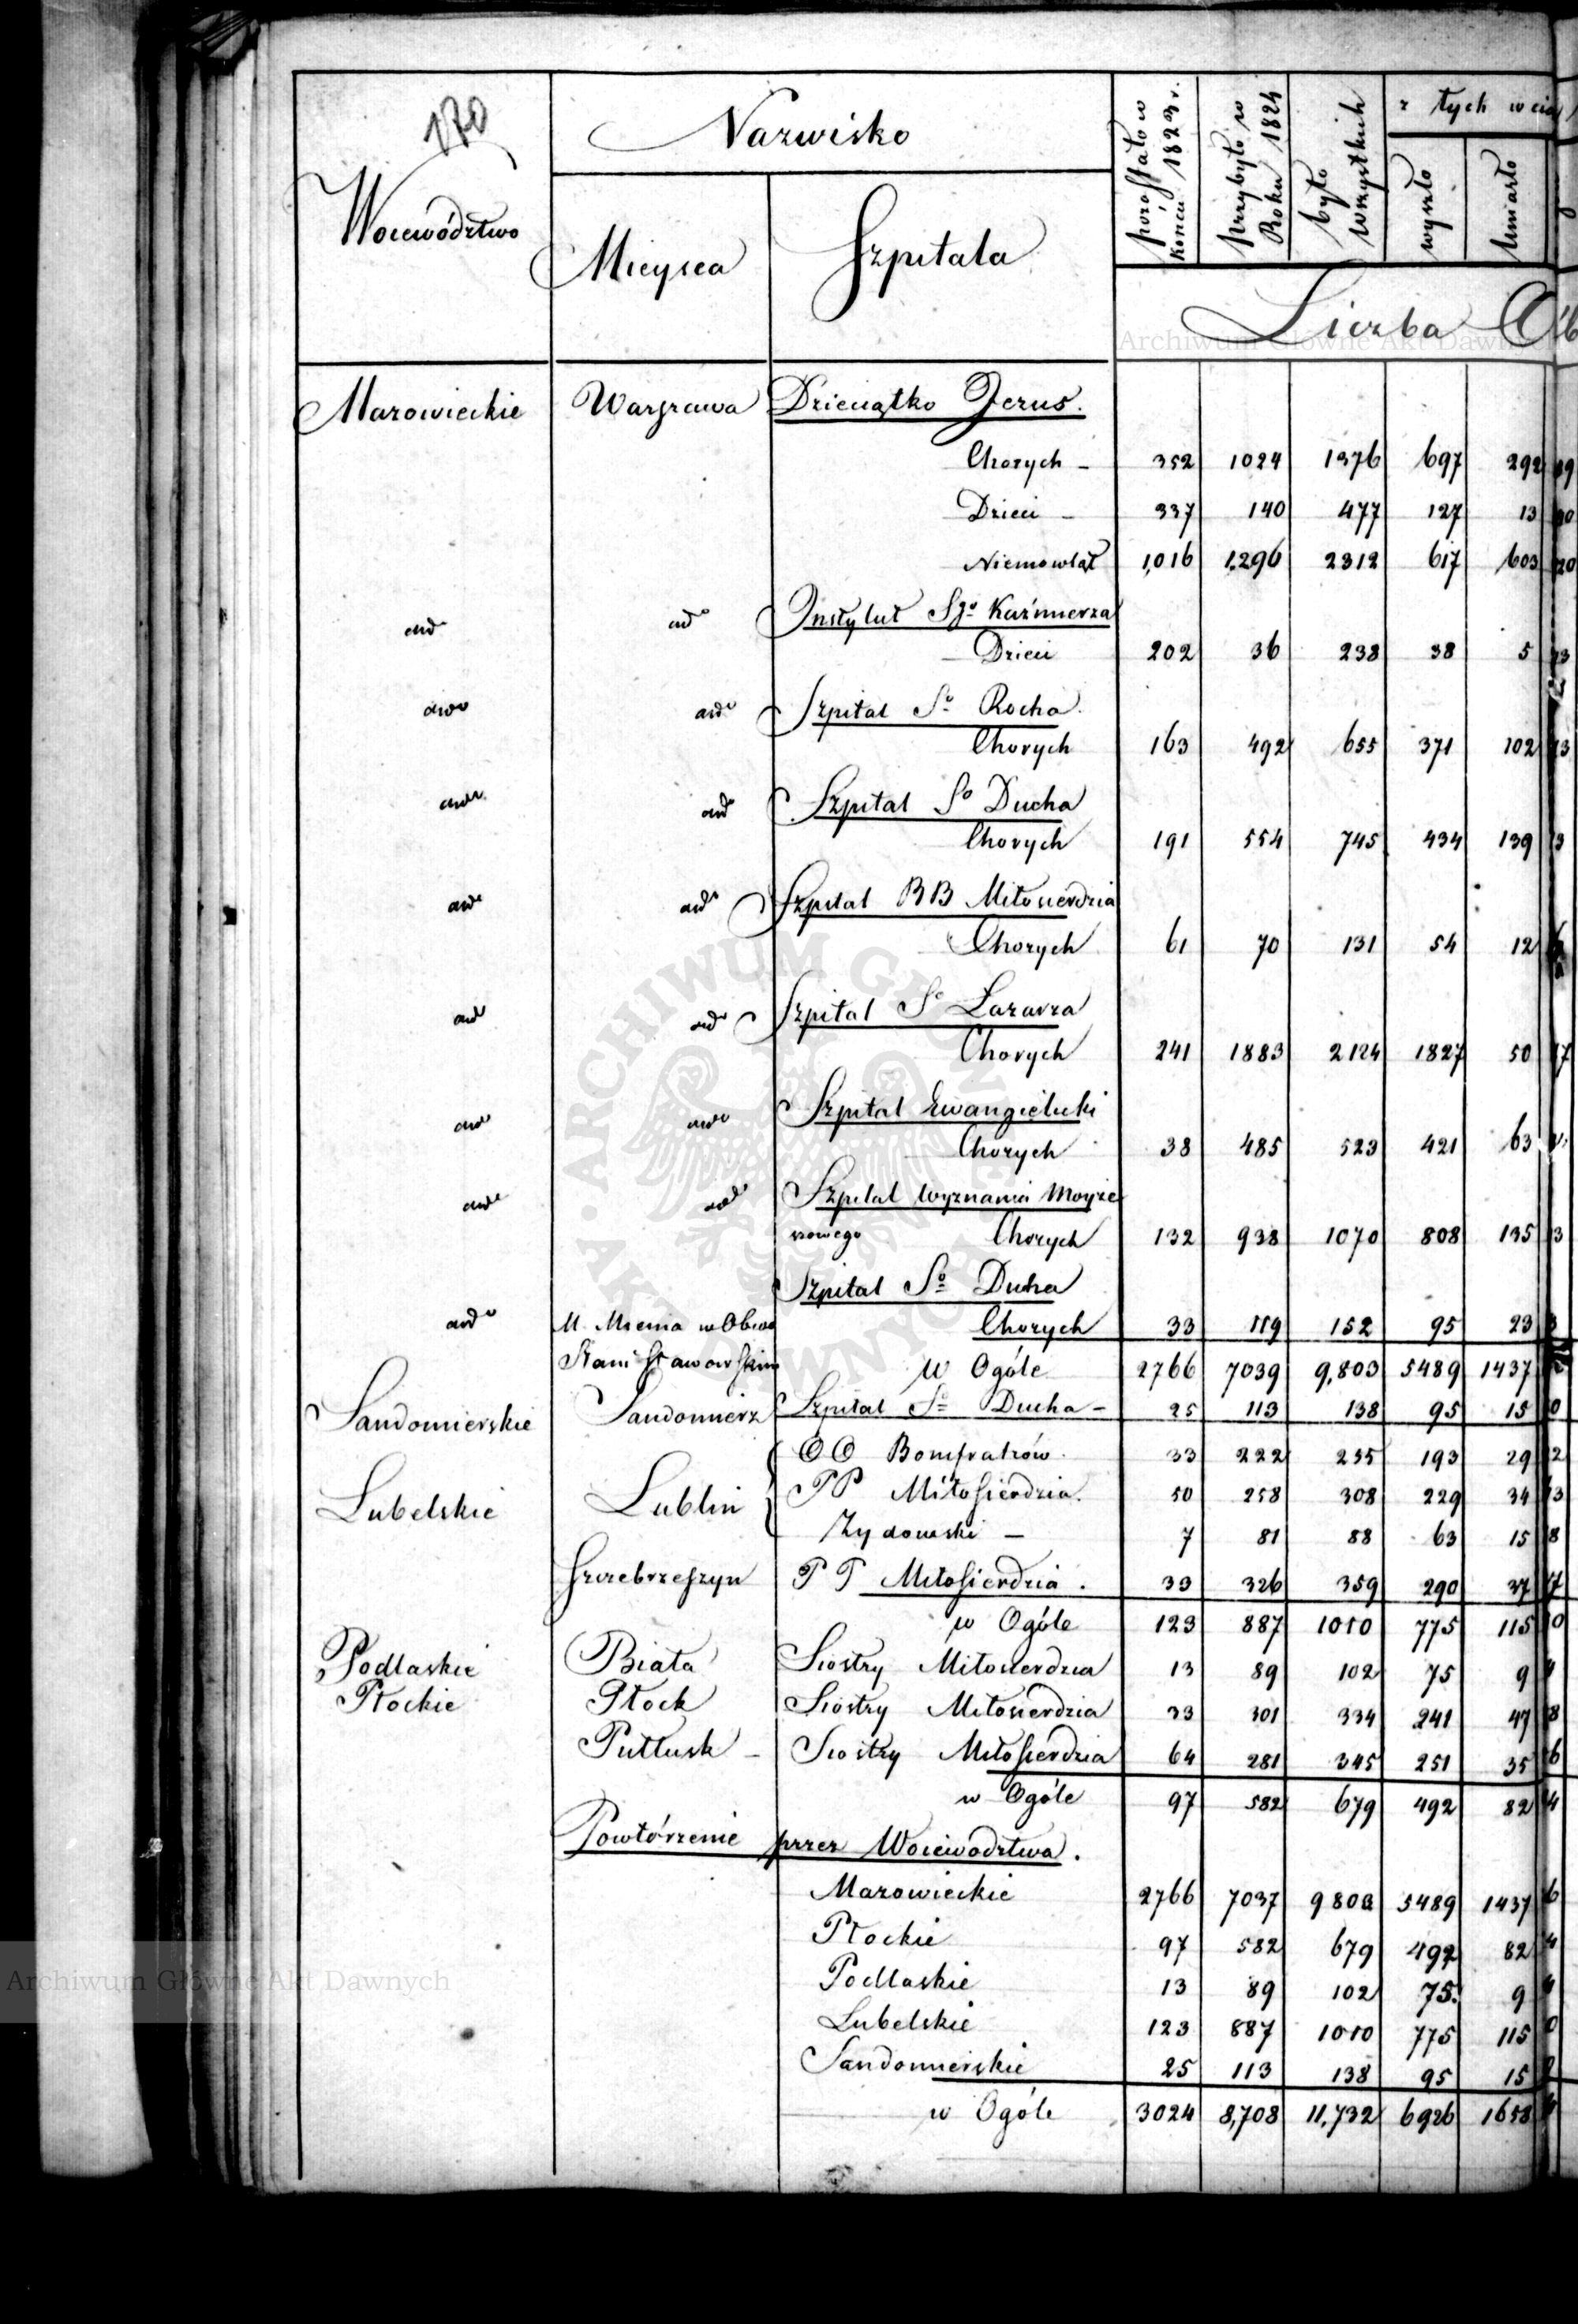 170
Nazwisko
Woiewództwo
Mieysca
Szpitala
pozostało w końcu 1823 r.
przybyło w Roku 1824
było wszystkich
z tych w ciąg
wyszło
umarło
Liczba Osób
Mazowieckie Warszawa Dzieciątko Jezus.
Chorych - 352 1024 1376 697 292
Dzieci - 337 140 477 127 13
Niemowląt 1,016 1,296 2312 617 603
dtto dtto Instytut Sgo Kaźmierza
Dzieci 202 36 238 38 5
dtto dtto Szpital So Rocha.
Chorych 163 492 655 371 102
dtto dtto Szpital So Ducha
Chorych 191 554 745 434 139
dtto dtto Szpital BB Miłosierdzia
Chorych 61 70 131 54 12
dtto dtto Szpital So Łazarza
Chorych 241 1883 2124 1827 50
dtto dtto Szpital Ewangielicki
Chorych 38 485 523 421 63
dtto dtto Szpital wyznania Moyże
szowego Chorych 132 938 1070 808 135
Szpital So Ducha
dtto M. Mienia w Obwo Chorych 33 119 152 95 23
Stanisławowskim w Ogóle 2766 7039 9,803 5489 1437
Sandomierskie Sandomierz Szpital So Ducha - 25 113 138 95 15
OO Bonifratrów. 33 222 255 193 29
Lubelskie Lublin PP Miłosierdzia. 50 258 308 229 34
Żydowski - 7 81 88 63 15
Szczebrzeszyn PP Miłosierdzia. 33 326 359 290 37
w Ogóle 123 887 1010 775 115
Podlaskie Biała Siostry Miłosierdzia 13 89 102 75 9
Płockie Płock Siostry Miłosierdzia 33 301 334 241 47
Pułtusk - Siostry Miłosierdzia 64 281 345 251 35
w Ogóle 97 582 679 492 82
Powtórzenie przez Woiewództwa.
Mazowieckie 2766 7037 9803 5489 1437
Płockie 97 582 679 492 82
Podlaskie 13 89 102 75. 9
Lubelskie 123 887 1010 775 115
Sandomierskie 25 113 138 95 15
w Ogóle 3024 8,708 11,732 6926 1658
Archiwum Główne Akt Dawnych